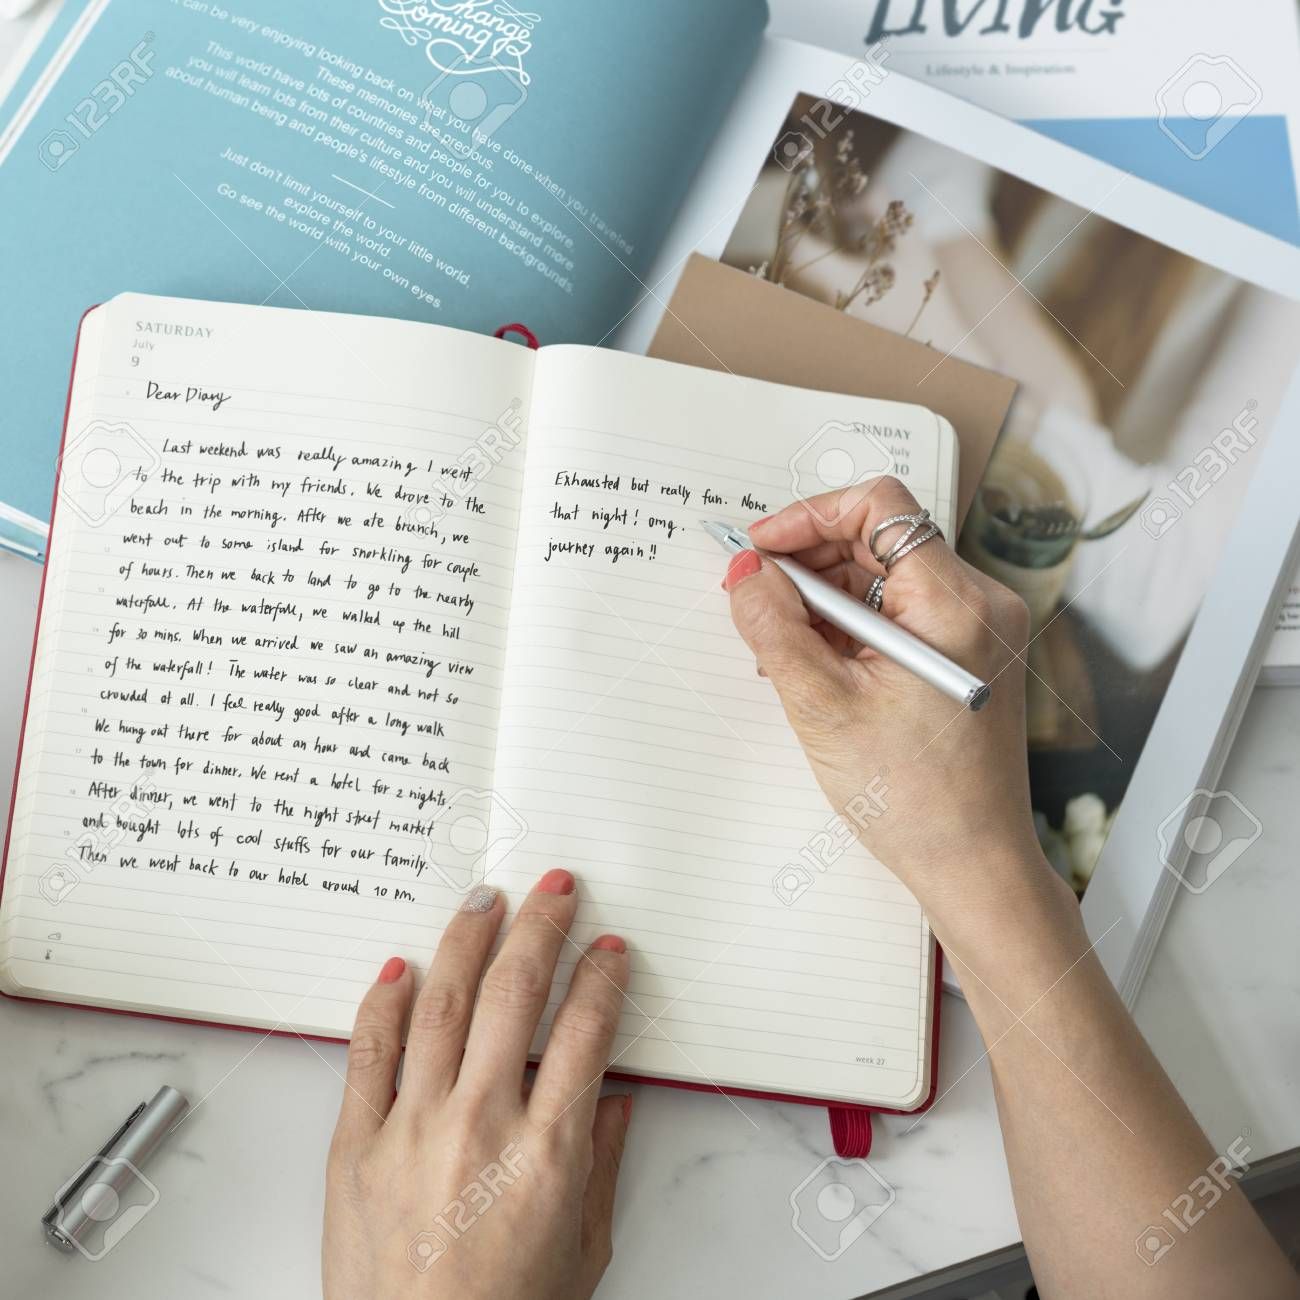 Change
Coming
It can be very enjoying looking back on what you have done when you traveled
These memories are precious.
This world have lots of countries and people for you to explore.
you will learn lots from their culture and you will understand more
about human being and people's lifestyle from different backgrounds.
Just don't limit yourself to your little world,
explore the world.
Go see the world with your own eyes
LIVING
Lifestyle & Inspiration
SATURDAY
July
9
Dear Diary
Last weekend was really amazing I went
to the trip with my friends. We drove to the
beach in the morning. After we ate brunch, we
went out to some island for snorkling for couple
of hours. Then we back to land to go to the nearby
waterfall. At the waterfall, we walked up the hill
for 30 mins. When we arrived we saw an amazing view
of the waterfall! The water was so clear and not so
crowded at all. I feel really good after a long walk
We hung out there for about an hour and came back
to the town for dinner. We rent a hotel for 2 nights.
After dinner, we went to the night street market
and bought lots of cool stuffs for our family.
Then we went back to our hotel around 10 pm.
SUNDAY
July
10
Exhausted but really fun. None
that night! omg.
journey again!!
week 27
123RF